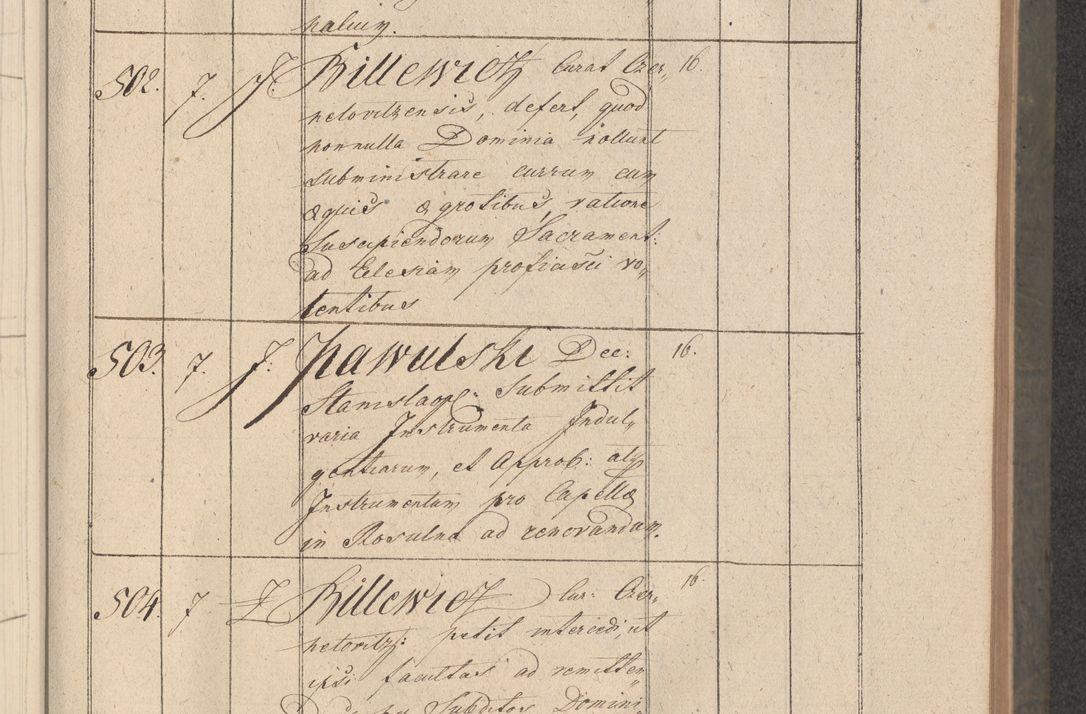 502. 7. J. Billewicz Curat Czer„ 16.
netovitzensis, defert, quod
nonnulla Dominia nollunt
subministrare currum cum
æquis ægrotibus, ratione
Suscipiendorum Sacrament:
ad Eclesiam proficisci vo„
lentibus
503. 7. J. Hawulski Dec: 16.
Stanislaop: Submittit
varia Instrumenta Indul„
gentiarum, et Approb: atq
Instrumentum pro Capella
in Rosulna ad renovandum.
504. 7 J Billewicz Cur: Czer„ 16.
netovitz: petit intercedi, ut
ipsi facultas ad remitten„
Subditos Domini„